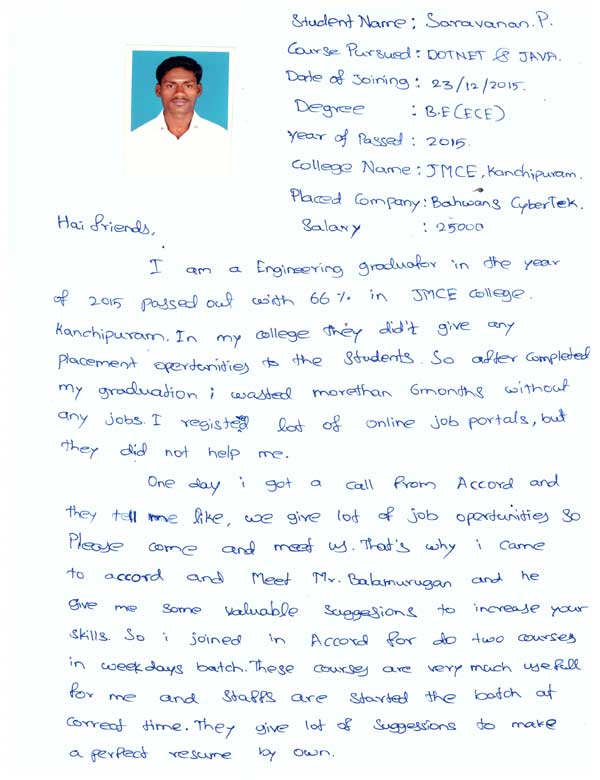 Student Name : Saravanan.P.
Course Pursued : DOTNET & JAVA.
Date of Joining : 23/12/2015.
Degree : B.E(ECE)
Year of Passed : 2015.
College Name : JMCE, Kanchipuram.
Placed Company : Bahwans CyberTek.
Salary : 25000
Hai friends,
I am a Engineering graduator in the year
of 2015 passed out with 66% in JMCE college.
Kanchipuram. In my college they did't give any
placement opertunities to the Students. So after completed
my graduation i wasted morethan 6months without
any jobs. I registed lot of online job portals, but
they did not help me.
One day i got a call from Accord and
they tell me like, we give lot of job opertunities so
Please come and meet us. That's why i came
to accord and Meet Mr. Balamurugan and he
give me some valuable suggesions to increase your
skills. So i joined in Accord for do two courses
in weekdays batch. These courses are very much usefull
for me and staffs are started the batch at
correct time. They give lot of suggessions to make
a perfect resume by own.